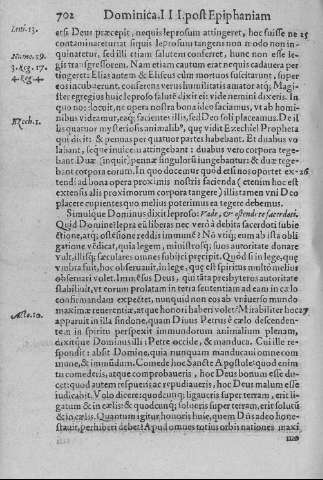 702 Dominica. III. post Epiphaniam
Leui. 13. etsi Deus præcepit, nequis leprosum attingeret, hoc fuisse ne 25
contaminaretur: at siquis leprosum tangens non modo non in-
Nume. 19. quinatetur, sed illi etiam salutem conferret, hunc non esse le-
3. Reg. 17. gis transgressorem. Nam etiam cautum erat nequis cadauera per
4. Reg. 4 tingeret: Elias autem & Eliseus cùm mortuos suscitarunt, super
eos incubuerunt, conferens verus humilitatis amator atq; Magi-
ster egregius huic leproso salutē dixit ei: vide nemini dixeris. In
quo nos docuit, ne opera nostra bona ideo faciamus, vt ab homi-
nibus videamur, eaq; facientes illis, sed Deo soli placeamus. De il
Ezech. 1. lis quatuor mysteriosis animalib⁹, quę vidit Ezechiel Propheta
qui dicit: & pennas per quatuor partes habebant. Et duabus vo
labant, seque inuicem attingebant: duabus vero corpora tege-
bant: Duæ (inquit) pennæ singulorū iungebantur: & duæ tege-
bant corpora eorum. In quo docemur quòd etsi nos oportet ex- 26
tendi ad bona opera proximis nostris facienda (etenim hoc est
extensis alis proximorum corpora tangere) illis tamen vni Deo
placere cupientes quo melius poterimus ea tegere debemus.
Simulque Dominus dixit leproso: Vade, & ostende te sacerdoti.
Quid Domine? lepra eū liberas nec verò à debita sacerdoti subie
ctione, atq; ostensione reddis immunē? Nō vtiq; eum ab ista obli-
gatione vēdicat, quia legem, ministrosq; suos autoritate donare
vult, illisq; sæculares omnes subijci præcipit. Quòd si in lege, quę
vmbra fuit, hoc obseruauit, in lege, quę est spiritus multo melius
obseruari volet. Imò Iesus Deus, qui tāta presbyteros autoritate
stabiliuit, vt eorum prolatam in terra sententiam ad eam in cælo
confirmandam expectet, nunquid non eos ab vniuerso mundo
maximæ reuerentiæ, atque honori haberi volet? Mirabiliter hoc 27
Acto. 10. apparuit in illa sindone, quam Diuus Petrus è cælo descenden-
tem in spiritu perspexit immundorum animalium plenam,
dixitque Dominus illi: Petre occide, & manduca. Cui ille re-
spondit: absit Domine, quia nunquam manducaui omne com
mune, & immūdum. Comede hoc Sancte Apostole: quod enim
tu comederis, atque comprobaueris, hoc Deus bonum esse du-
cet: quod autem respueris ac repudiaueris, hoc Deus malum esse
iudicabit. Volo dicere: quodcunq; ligaueris super terram, erit li-
gatum & in cælis: & quodcunq; solueris super terram, erit solutū
& in cælis. Quantum igitur honoris huic, quem Dn̄s adeo hone-
stauit, perhiberi debet? Apud omnes totius orbis nationes maxi
mo